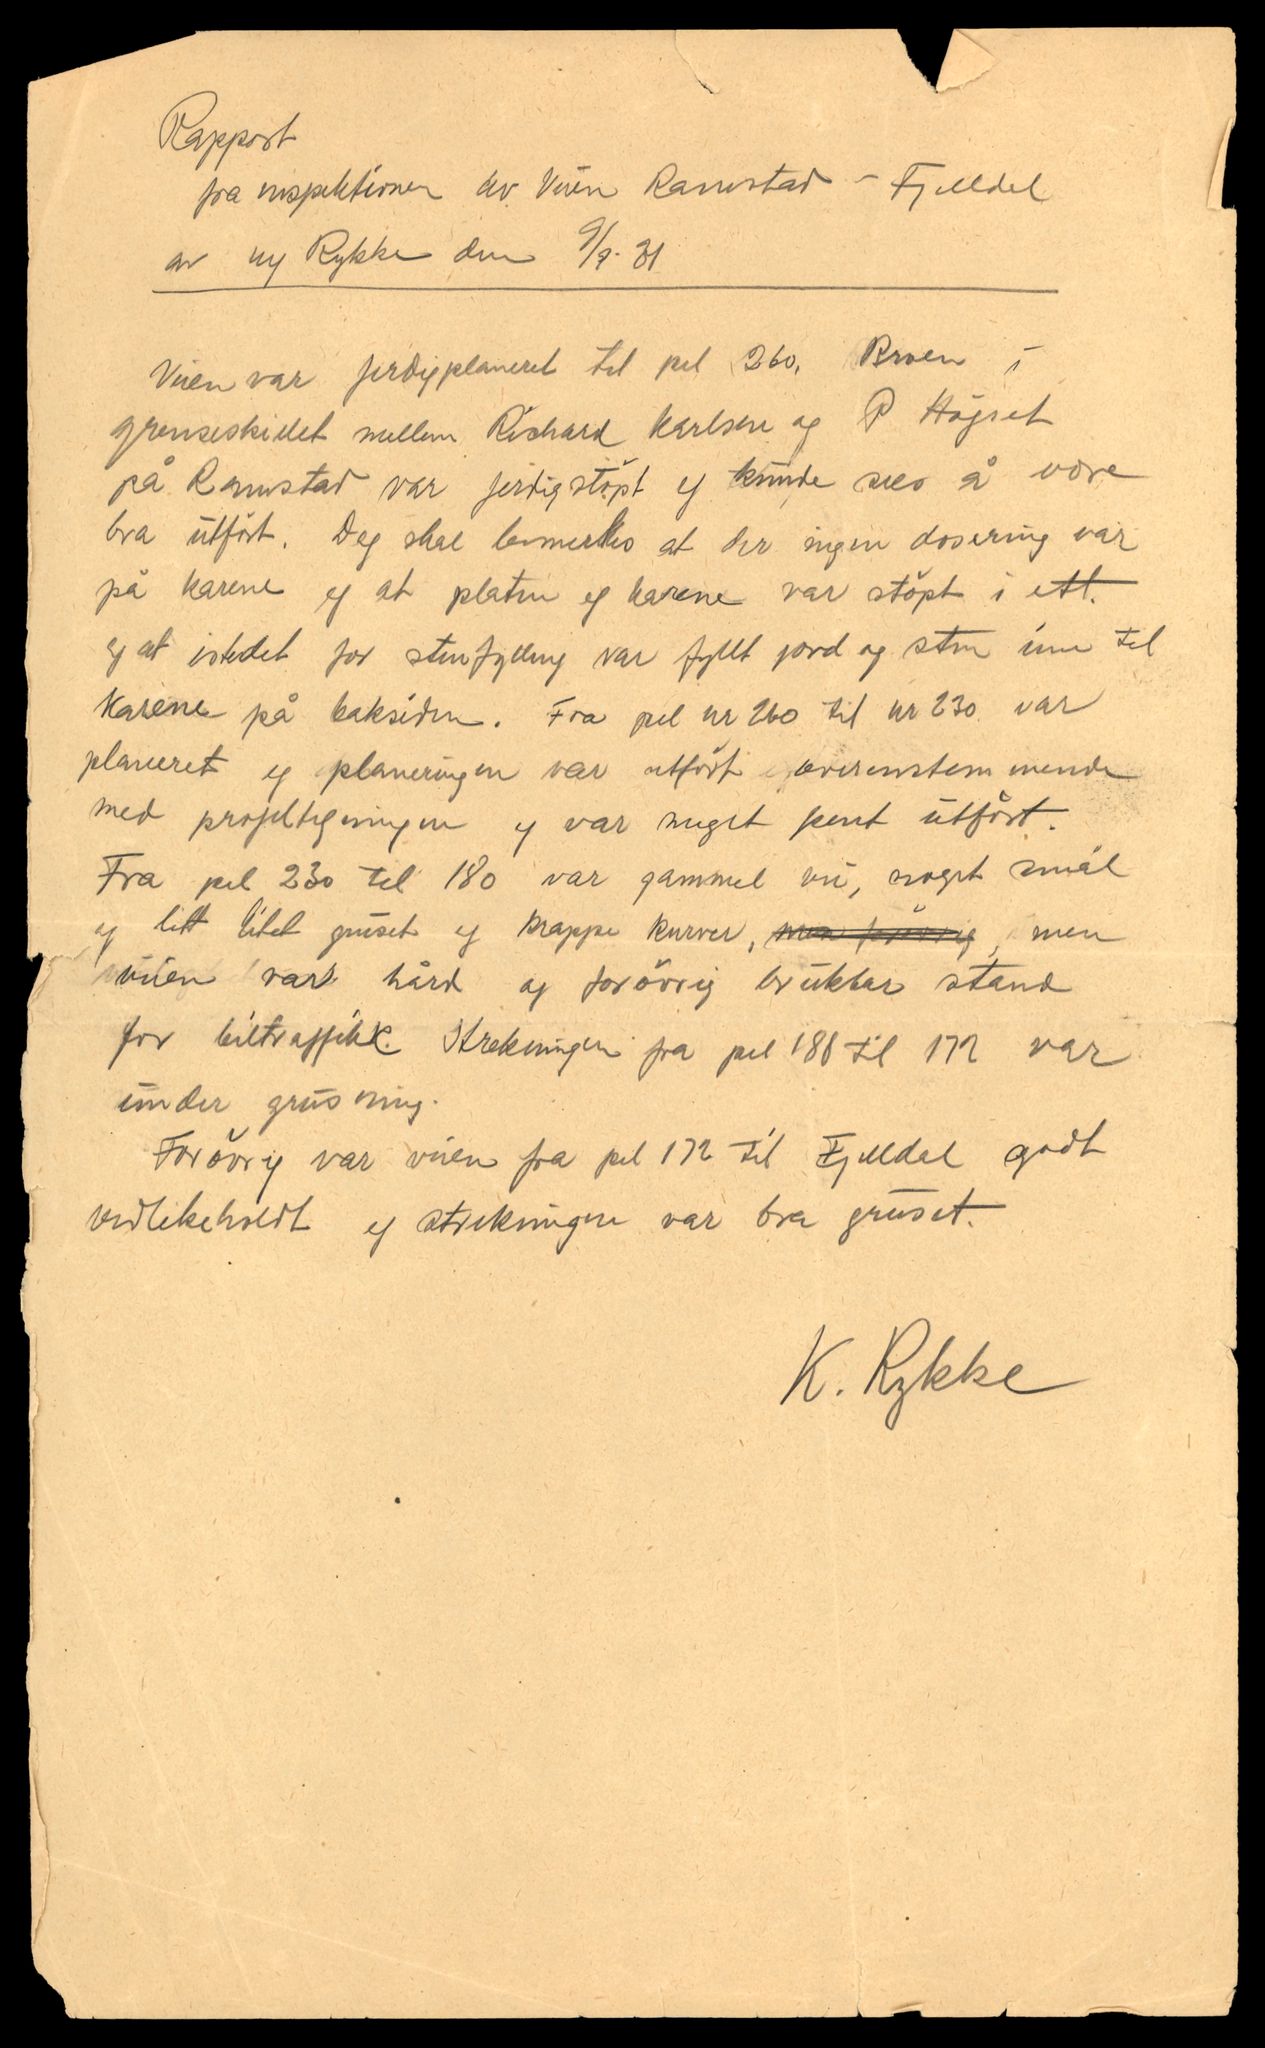 Rapport
fra inspektionen av Veien Ramstad - Fjelldal
av ing Rykke den 9/9. 31
Veien var ferdigplaneret til pel 260. Broen i
grenseskillet mellem Richard Karlsen og P Högset
på Ramstad var ferdigstöpt og kunde sees å være
bra utfört. Dog skal bemerkes at der ingen dosering var
på karene og at platen og karene var stöpt i ett.
og at istedet for stenfylling var fyllt jord og sten inn til
karene på baksiden. Fra pel nr 260 til nr 230 var
planeret og planeringen var utfört overenstemmende
med profiltegningen og var meget pent utfört.
Fra pel 230 til 180 var gammel vei, noget smal
og litt litet gruset og krappe kurver, men forövrig, men
veien var hård og forövrig brukbar stand
for biltraffikk. Strekningen fra pel 188 til 172 var
under grusning.
Forövrig var veien fra pel 172 til Fjelldal godt
vedlikeholdt og strekningen var bra gruset.
K. Rykke